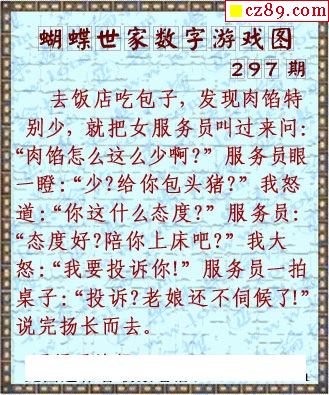 cz89.com
蝴蝶世家数字游戏图
297期
去饭店吃包子，发现肉馅特
别少，就把女服务员叫过来问：
“肉馅怎么这么少啊？” 服务员眼
一瞪：“少？给你包头猪？” 我怒
道：“你这什么态度？” 服务员：
“态度好？陪你上床吧？” 我大
怒：“我要投诉你！” 服务员一拍
桌子：“投诉？老娘还不伺候了！”
说完扬长而去。